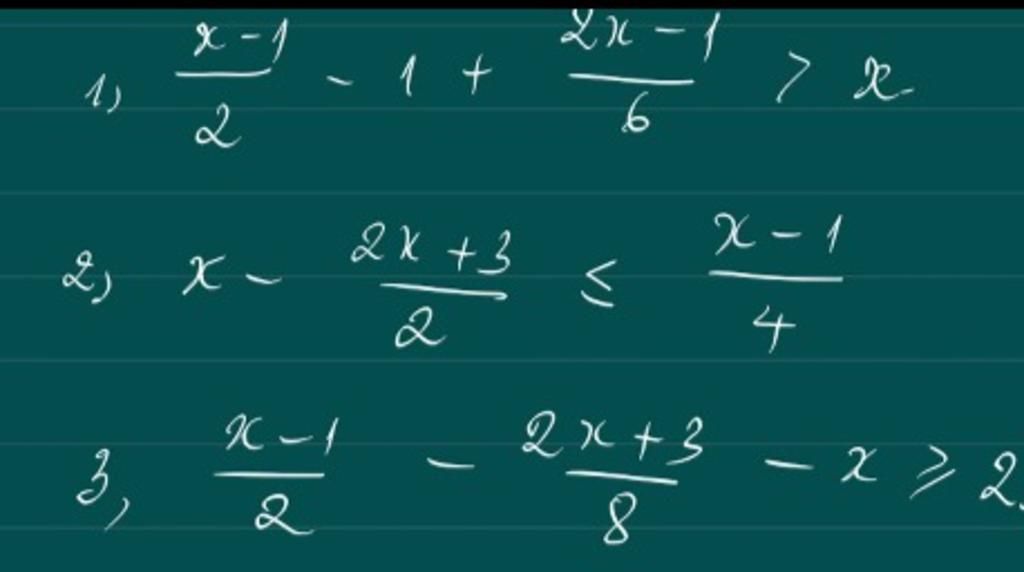 1) \frac{x-1}{2} - 1 + \frac{2x-1}{6} > x
2) x - \frac{2x+3}{2} \leq \frac{x-1}{4}
3, \frac{x-1}{2} - \frac{2x+3}{8} - x \geqslant 2.